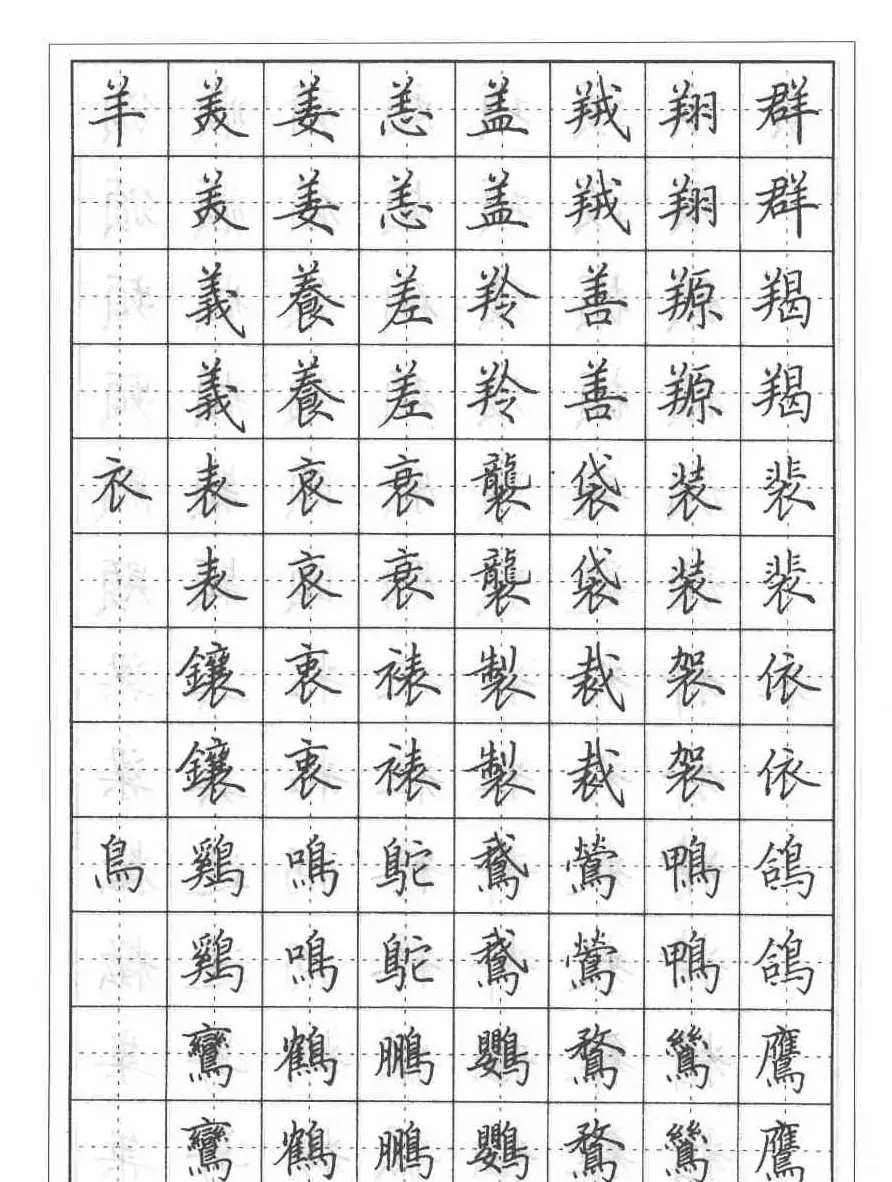 羊美姜恙盖羢翔群
美姜恙盖羢翔群
義養差羚善羱羯
義養差羚善羱羯
衣表哀衰襲袋装裴
表哀衰襲袋装裴
鑲衷裱製裁袈依
鑲衷裱製裁袈依
鳥鷄鳴鴕鵞鶯鴨鴿
鷄鳴鴕鵞鶯鴨鴿
鸞鶴鵬鸚鶩鷥鷹
鸞鶴鵬鸚鶩鷥鷹